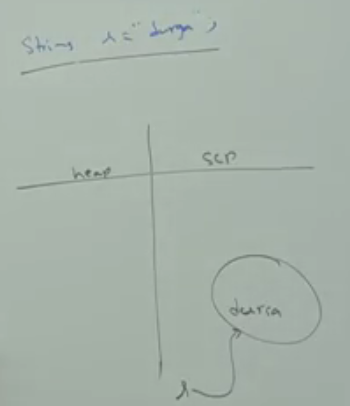 String s = "durga";
heap SCP
durga
s